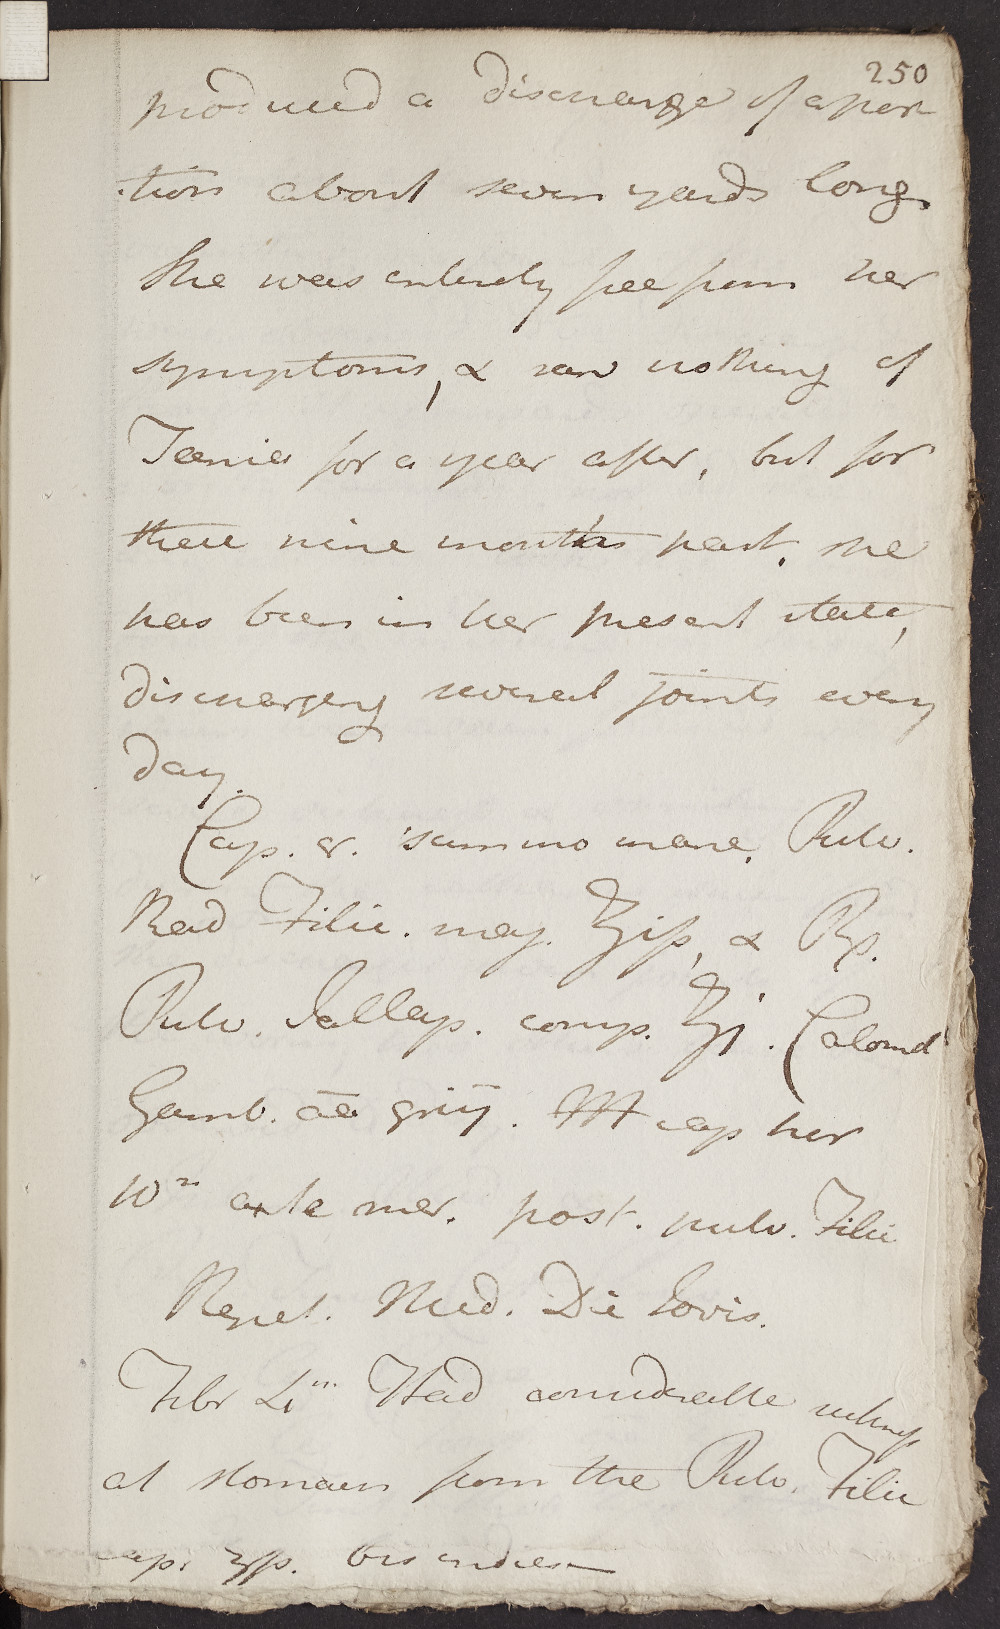 250
produced a discharge of a por
tion about seven yards long.
She was entirely free from her
symptoms, & saw nothing of
Taenia for a year after, but for
these nine months past, she
has been in her present state,
discharging several joints every
day.
Cap. cr. summo mane, Pulv.
Rad Filic. maj. ʒiſs, & Rp.
Pulv. Jallap. comp. ʒj. Calomel
Gamb. āā griij. M cap hor
10ma ante mer. post. pulv. Filic
Repet. Med. Die Jovis.
Febr Had considerable sickness
at stomach from the Pulv. Filic
cap. ʒſs. bis indies